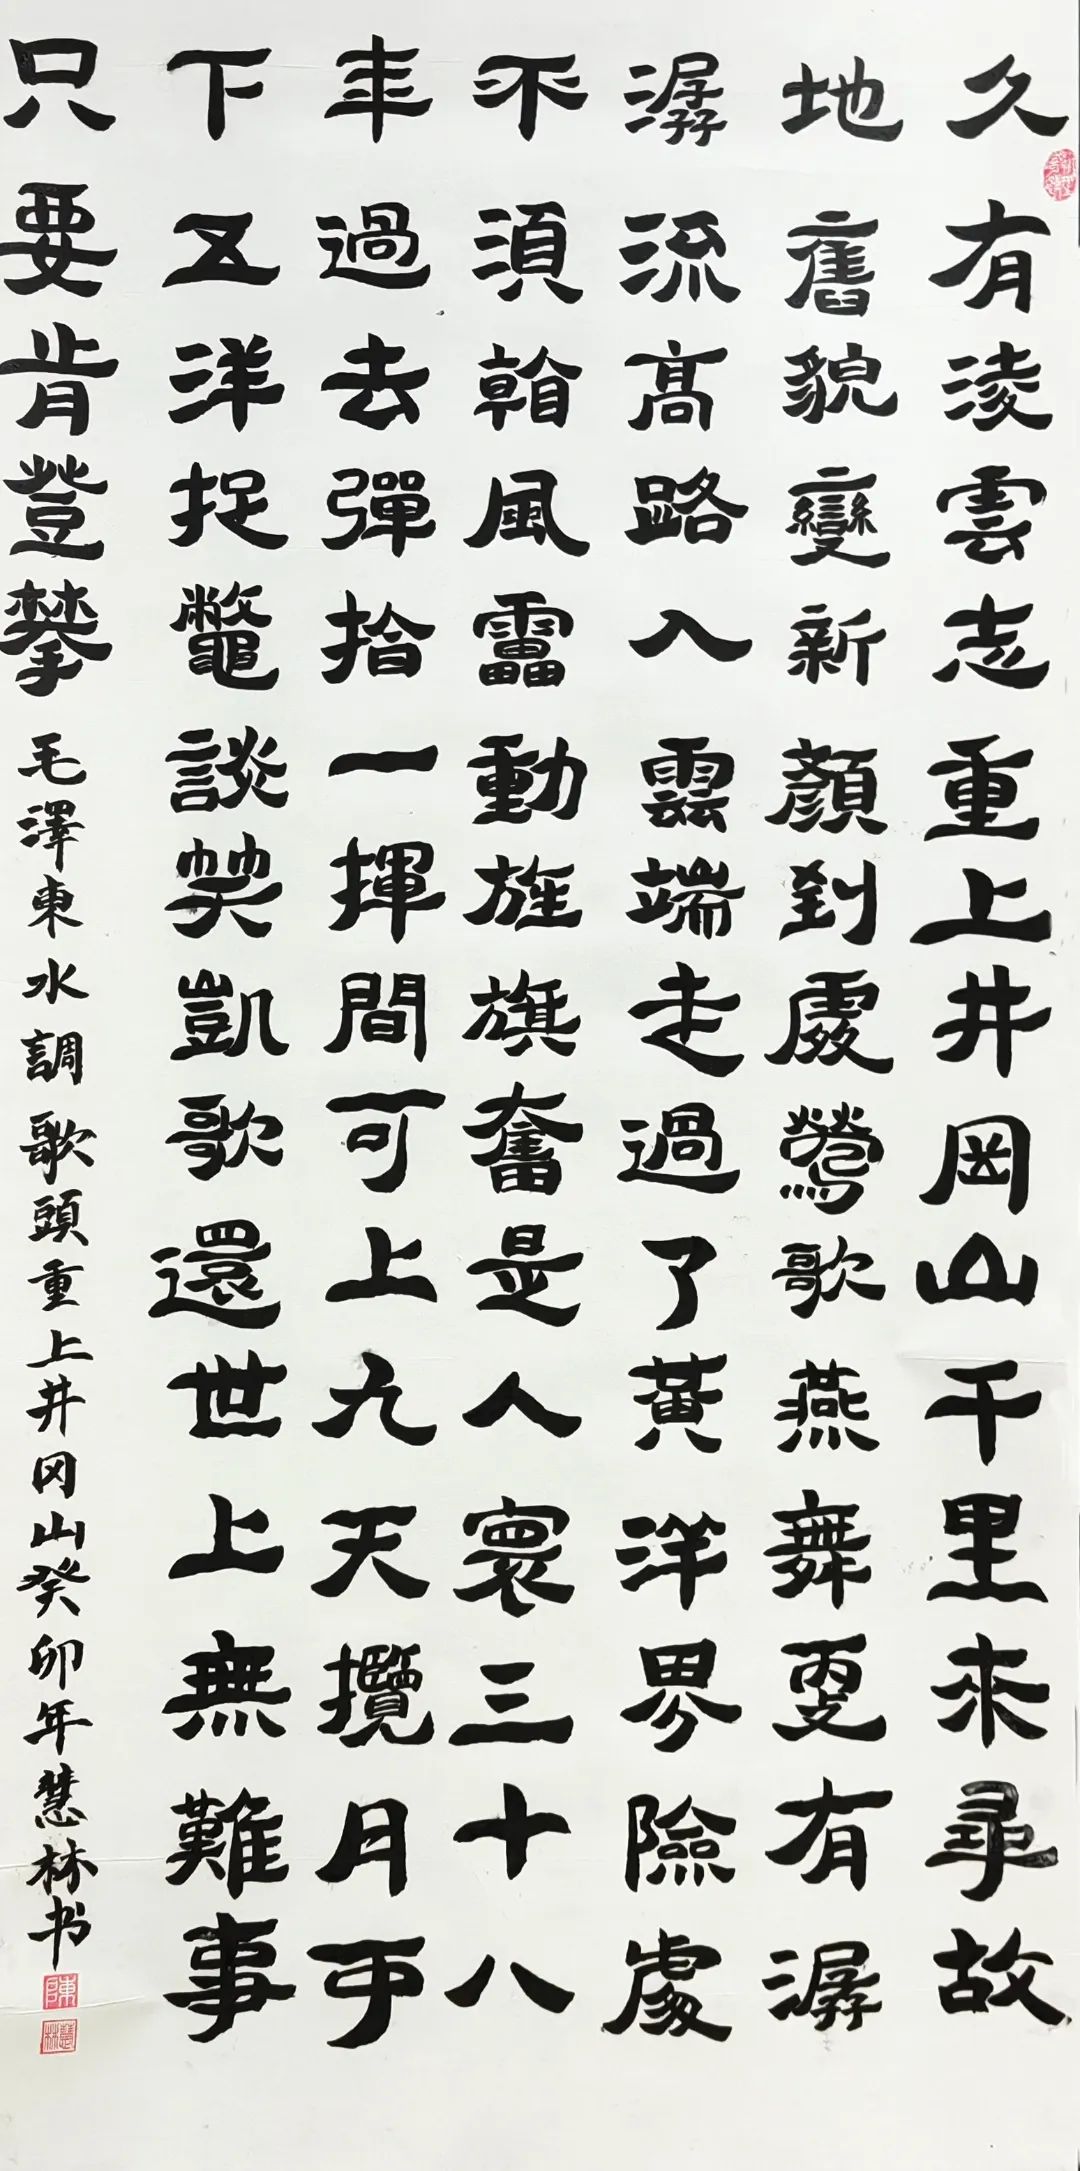 久有淩雲志重上井岡山千里來尋故
地舊貌變新顏到處鶯歌燕舞更有潺
潺流高路入雲端走過了黃洋界險處
不須看風雷動旌旗奮是人寰三十八
年過去彈指一揮間可上九天攬月可
下五洋捉鱉談笑凱歌還世上無難事
只要肯登攀
毛澤東水調歌頭重上井冈山癸卯年慧林书
陳
慧林